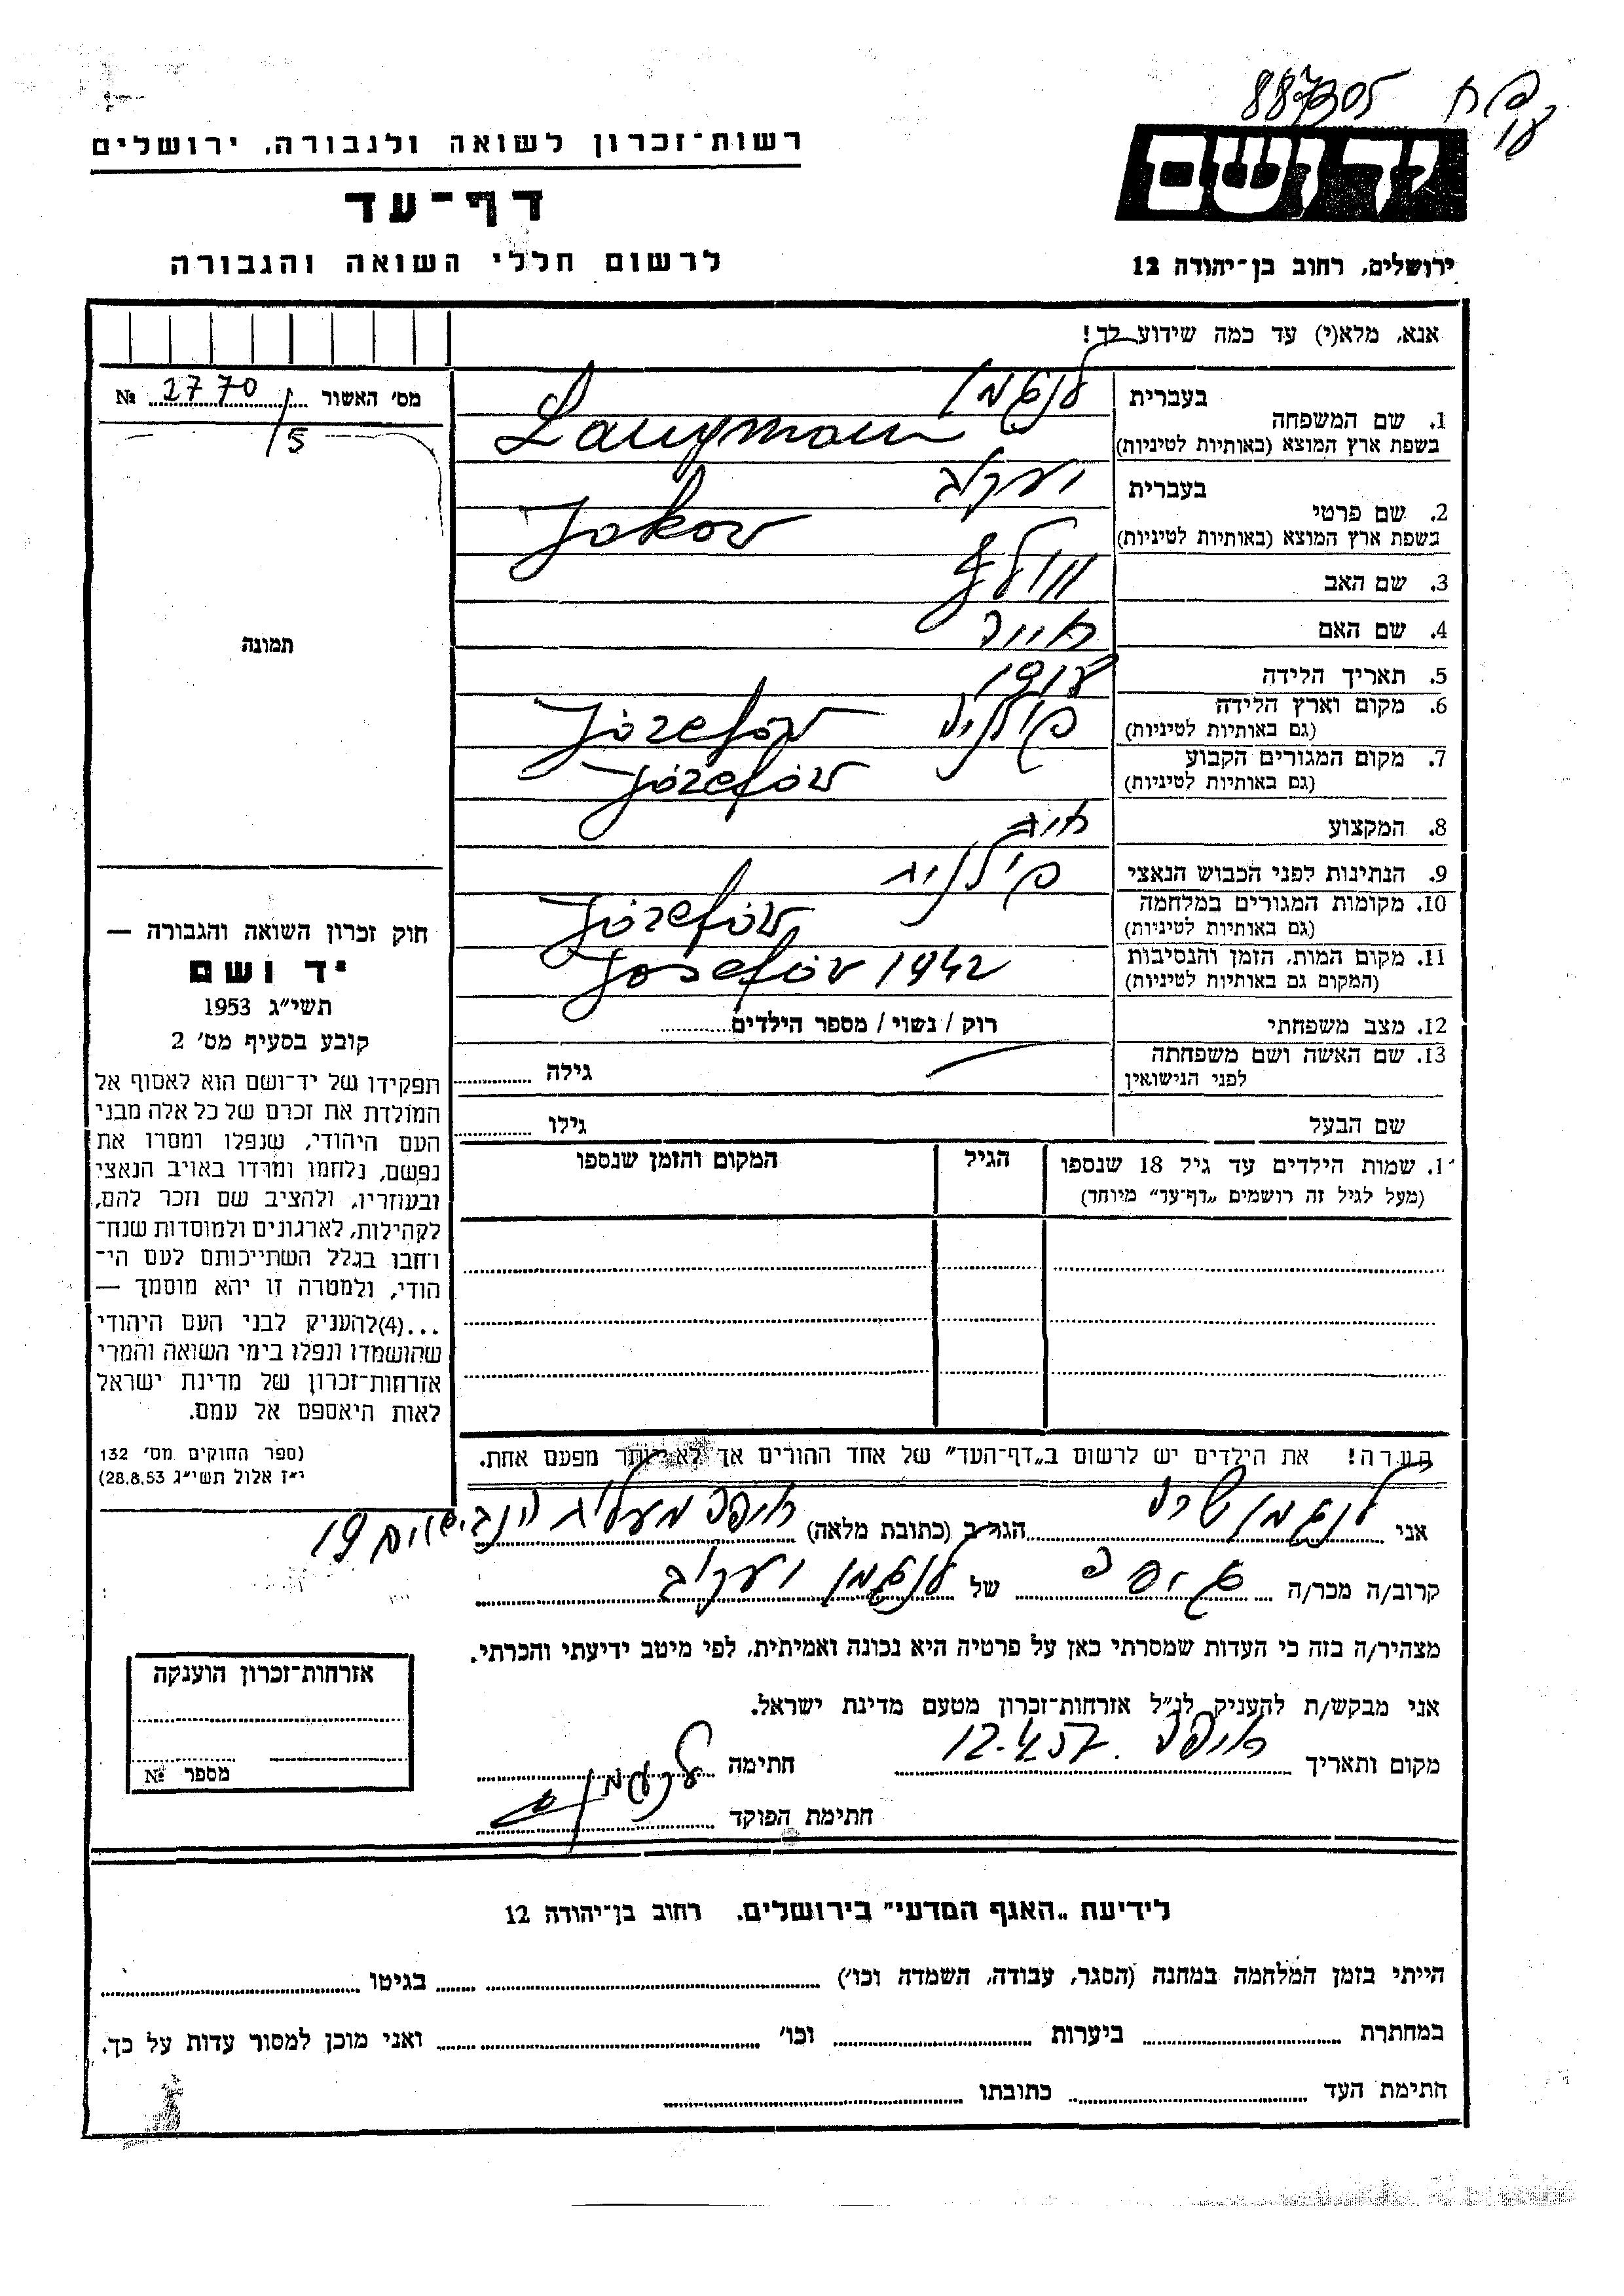 887305
רשות־זכרון לשואה ולגבורה, ירושלים
דף־עד
לרשום חללי השואה והגבורה
יד ושם
ירושלים, רחוב בן־יהודה 12
אנא, מלא(י) עד כמה שידוע לך!
מס׳ האשור № 2770
/5
תמונה
1. שם המשפחה בעברית לנגמן
בשפת ארץ המוצא (באותיות לטיניות) Langman
2. שם פרטי בעברית יעקב
בשפת ארץ המוצא (באותיות לטיניות) Jakov
3. שם האב וולף
4. שם האם
5. תאריך הלידה
6. מקום וארץ הלידה
(גם באותיות לטיניות) Józefov פולניה
7. מקום המגורים הקבוע
(גם באותיות לטיניות) Józefóv
8. המקצוע
9. הנתינות לפני הכבוש הנאצי פולנית
10. מקומות המגורים במלחמה
(גם באותיות לטיניות) Józefóv
11. מקום המות, הזמן והנסיבות
(המקום גם באותיות לטיניות) Josefóv 1942
12. מצב משפחתי רוק / נשוי / מספר הילדים
13. שם האשה ושם משפחתה
לפני הנישואין גילה
שם הבעל גילו
1. שמות הילדים עד גיל 18 שנספו הגיל המקום והזמן שנספו
(מעל לגיל זה רושמים „דף־עד״ מיוחד)
הערה! את הילדים יש לרשום ב„דף־העד״ של אחד ההורים אך לא יותר מפעם אחת.
חוק זכרון השואה והגבורה —
יד ושם
תשי״ג 1953
קובע בסעיף מס׳ 2
תפקידו של יד־ושם הוא לאסוף אל
המולדת את זכרם של כל אלה מבני
העם היהודי, שנפלו ומסרו את
נפשם, נלחמו ומרדו באויב הנאצי
ובעוזריו, ולהציב שם וזכר להם,
לקהילות, לארגונים ולמוסדות שנח־
רחבו בגלל השתייכותם לעם הי־
הודי, ולמטרה זו יהא מוסמך —
...(4)להעניק לבני העם היהודי
שהושמדו ונפלו בימי השואה והמרי
אזרחות־זכרון של מדינת ישראל
לאות היאספם אל עמם.
(ספר החוקים מס׳ 132
י״ז אלול תשי״ג 28.8.53)
אני לנגמן הגר ב (כתובת מלאה) חיפה מעלית הנביאים 19
קרוב/ה מכר/ה של לנגמן יעקב
מצהיר/ה בזה כי העדות שמסרתי כאן על פרטיה היא נכונה ואמיתית, לפי מיטב ידיעתי והכרתי.
אני מבקש/ת להעניק לנ״ל אזרחות־זכרון מטעם מדינת ישראל.
מקום ותאריך חיפה 12.4.57 חתימה לנגמן
חתימת הפוקד
אזרחות־זכרון הוענקה
מספר №
לידיעת „האגף המדעי״ בירושלים, רחוב בן־יהודה 12
הייתי בזמן המלחמה במחנה (הסגר, עבודה, השמדה וכו׳) בגיטו
במחתרת ביערות וכו׳ ואני מוכן למסור עדות על כך.
חתימת העד כתובתו